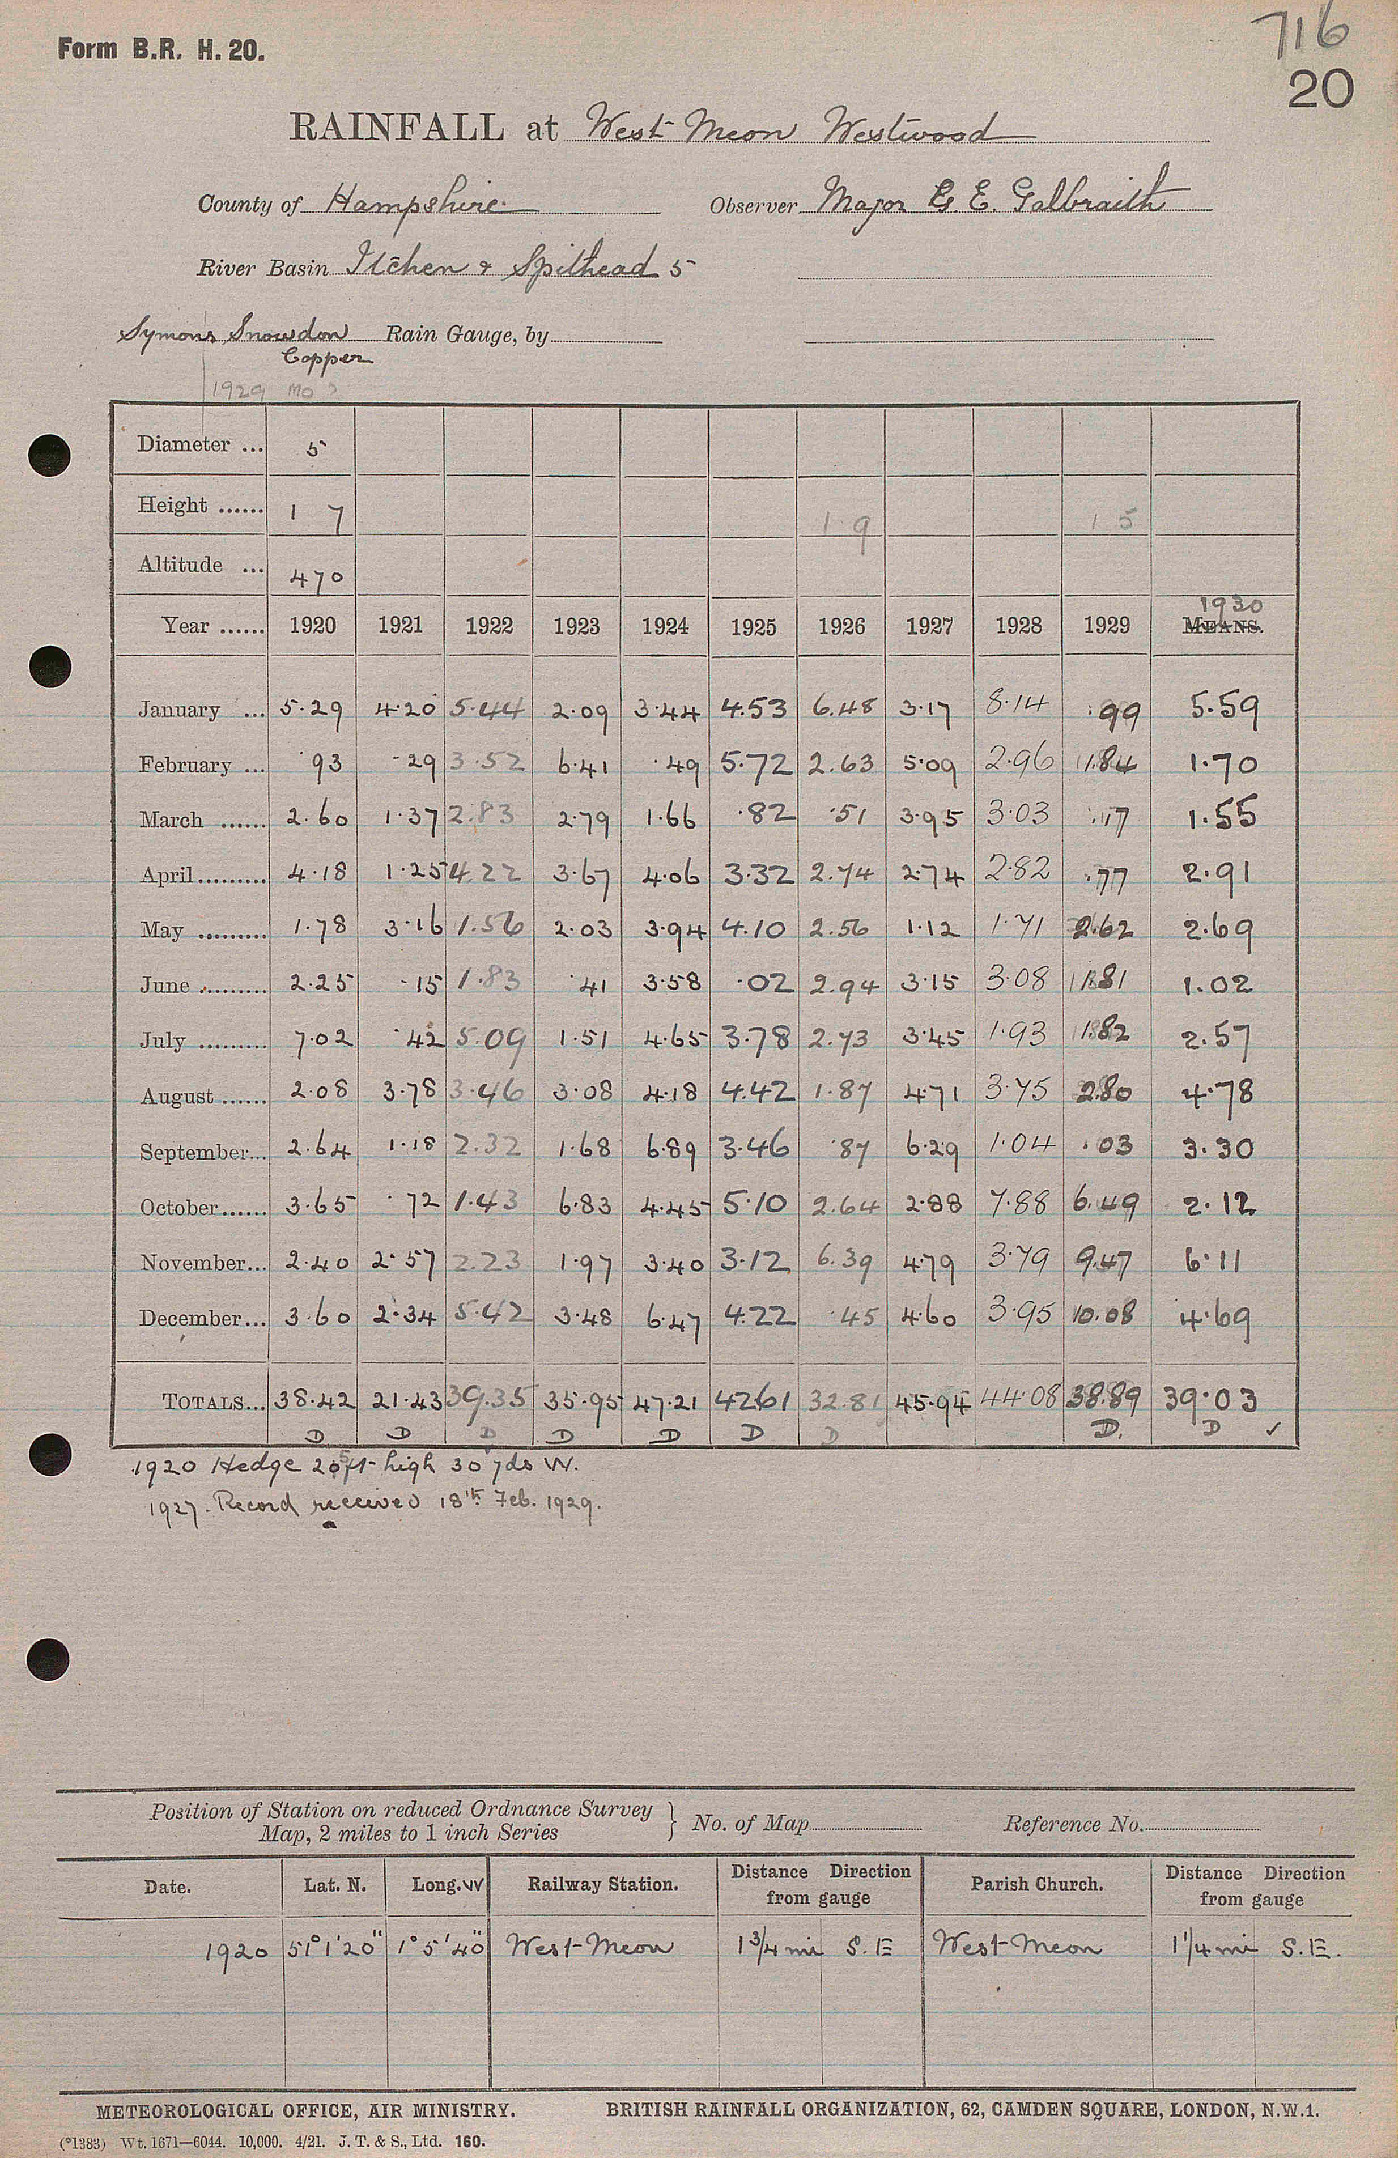 716
Form B.R. H. 20.
20
RAINFALL at West Meon Westwood
County of Hampshire Observer Major G. E. Galbraith
River Basin Itchen & Spithead 5
Symons Snowdon Rain Gauge, by
Copper
1929
Diameter ... 5
Height ...... 1 7 1·9 1 5
Altitude ... 470
1930
Year ...... 1920 1921 1922 1923 1924 1925 1926 1927 1928 1929 MEANS.
January ... 5·29 4·20 5·44 2·09 3·44 4.53 6.48 3·17 8·14 .99 5.59
February ... ·93 ·29 3·52 6·41 ·49 5·72 2.63 5·09 2·96 1.84 1·70
March ...... 2·60 1·37 2·83 2·79 1·66 ·82 ·51 3·95 3·03 .17 1·55
April......... 4·18 1·25 4.22 3·67 4·06 3·32 2.74 2·74 2·82 .77 2·91
May ......... 1·78 3·16 1.56 2·03 3·94 4·10 2.56 1·12 1·71 2.62 2·69
June ......... 2·25 ·15 1·83 ·41 3·58 ·02 2.94 3·15 3·08 1.81 1.02
July ......... 7·02 ·42 5.09 1·51 4·65 3·78 2·73 3·45 1·93 1.82 2·57
August ...... 2·08 3·78 3·46 3·08 4·18 4·42 1·87 4·71 3·75 2.80 4·78
September... 2·64 1·18 2·32 1·68 6·89 3·46 ·87 6·29 1·04 .03 3·30
October...... 3·65 ·72 1·43 6·83 4·45 5·10 2·64 2·88 7·88 6.49 2·12
November... 2·40 2·57 2·23 1·97 3·40 3·12 6.39 4·79 3·79 9.47 6·11
December... 3·60 2·34 5·42 3·48 6·47 4.22 ·45 4·60 3·95 10.08 4·69
TOTALS... 38·42 21·43 39.35 35·95 47·21 42.61 32.81 45·94 44·08 38.89 39·03
D D D D D D D D. D ✓
1920 Hedge high 30 yds W.
1927. Record received 18th Feb. 1929.
Position of Station on reduced Ordnance Survey Map, 2 miles to 1 inch Series } No. of Map Reference No.
Date. Lat. N. Long. W Railway Station. Distance Direction from gauge Parish Church. Distance Direction from gauge
1920 51° 1' 20" 1° 5' 40" West Meon 1 3/4 mi S.E West Meon 1 1/4 mi S.E.
METEOROLOGICAL OFFICE, AIR MINISTRY. BRITISH RAINFALL ORGANIZATION, 62, CAMDEN SQUARE, LONDON, N.W.1.
(*1383) Wt. 1671—6044. 10,000. 4/21. J. T. & S., Ltd. 160.